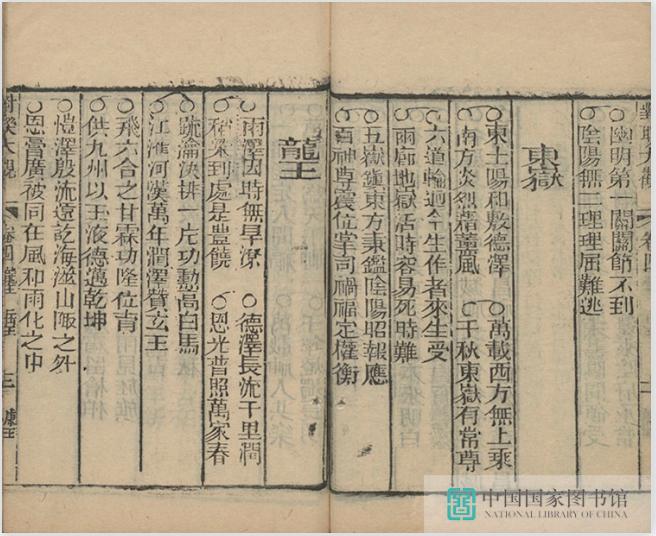 對聯大觀 卷四 二
○幽明第一關關節不到
○陰陽無二理理屈難逃
東嶽
○東土陽和敷德澤 ○萬載西方無上乘
○南方炎烈藹薰風 ○千秋東嶽有常尊
○六道輪迴今生作者來生受
○兩廊地獄活時容易死時難
○五嶽鍾東方秉鑑陰陽昭報應
○百神尊震位掌司禍福定權衡
龍王
○雨澤因時無旱潦 ○德澤長流千里潤
○稻梁到處是豐饒 ○恩光普照萬家春
○疏瀹決排一片功勳高白馬
○江淮河漢萬年潤澤贊玄王
○飛六合之甘霖功隆位育
○供九州以玉液德邁乾坤
○愷澤殷流遠訖海澨山陬之外
○恩膏廣被同在風和雨化之中
對聯大觀 卷四 三
中国国家图书馆
NATIONAL LIBRARY OF CHINA